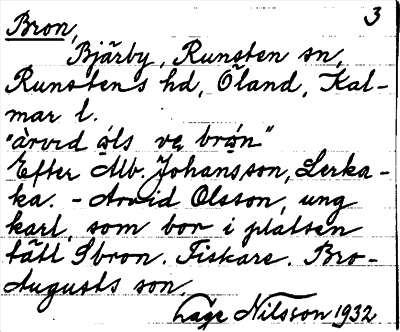 3
Bron,
Bjärby, Runsten sn,
Runstens hd, Öland, Kal-
mar l.
"àrvid ǫ̀ls vę brǫ́n"
Efter Alb. Johansson, Lerka-
ka. - Arvid Olsson, ung
karl, som bor i platsen
tätt Ibron. Fiskare. Bro-
Augusts son,
Lage Nilsson 1932.